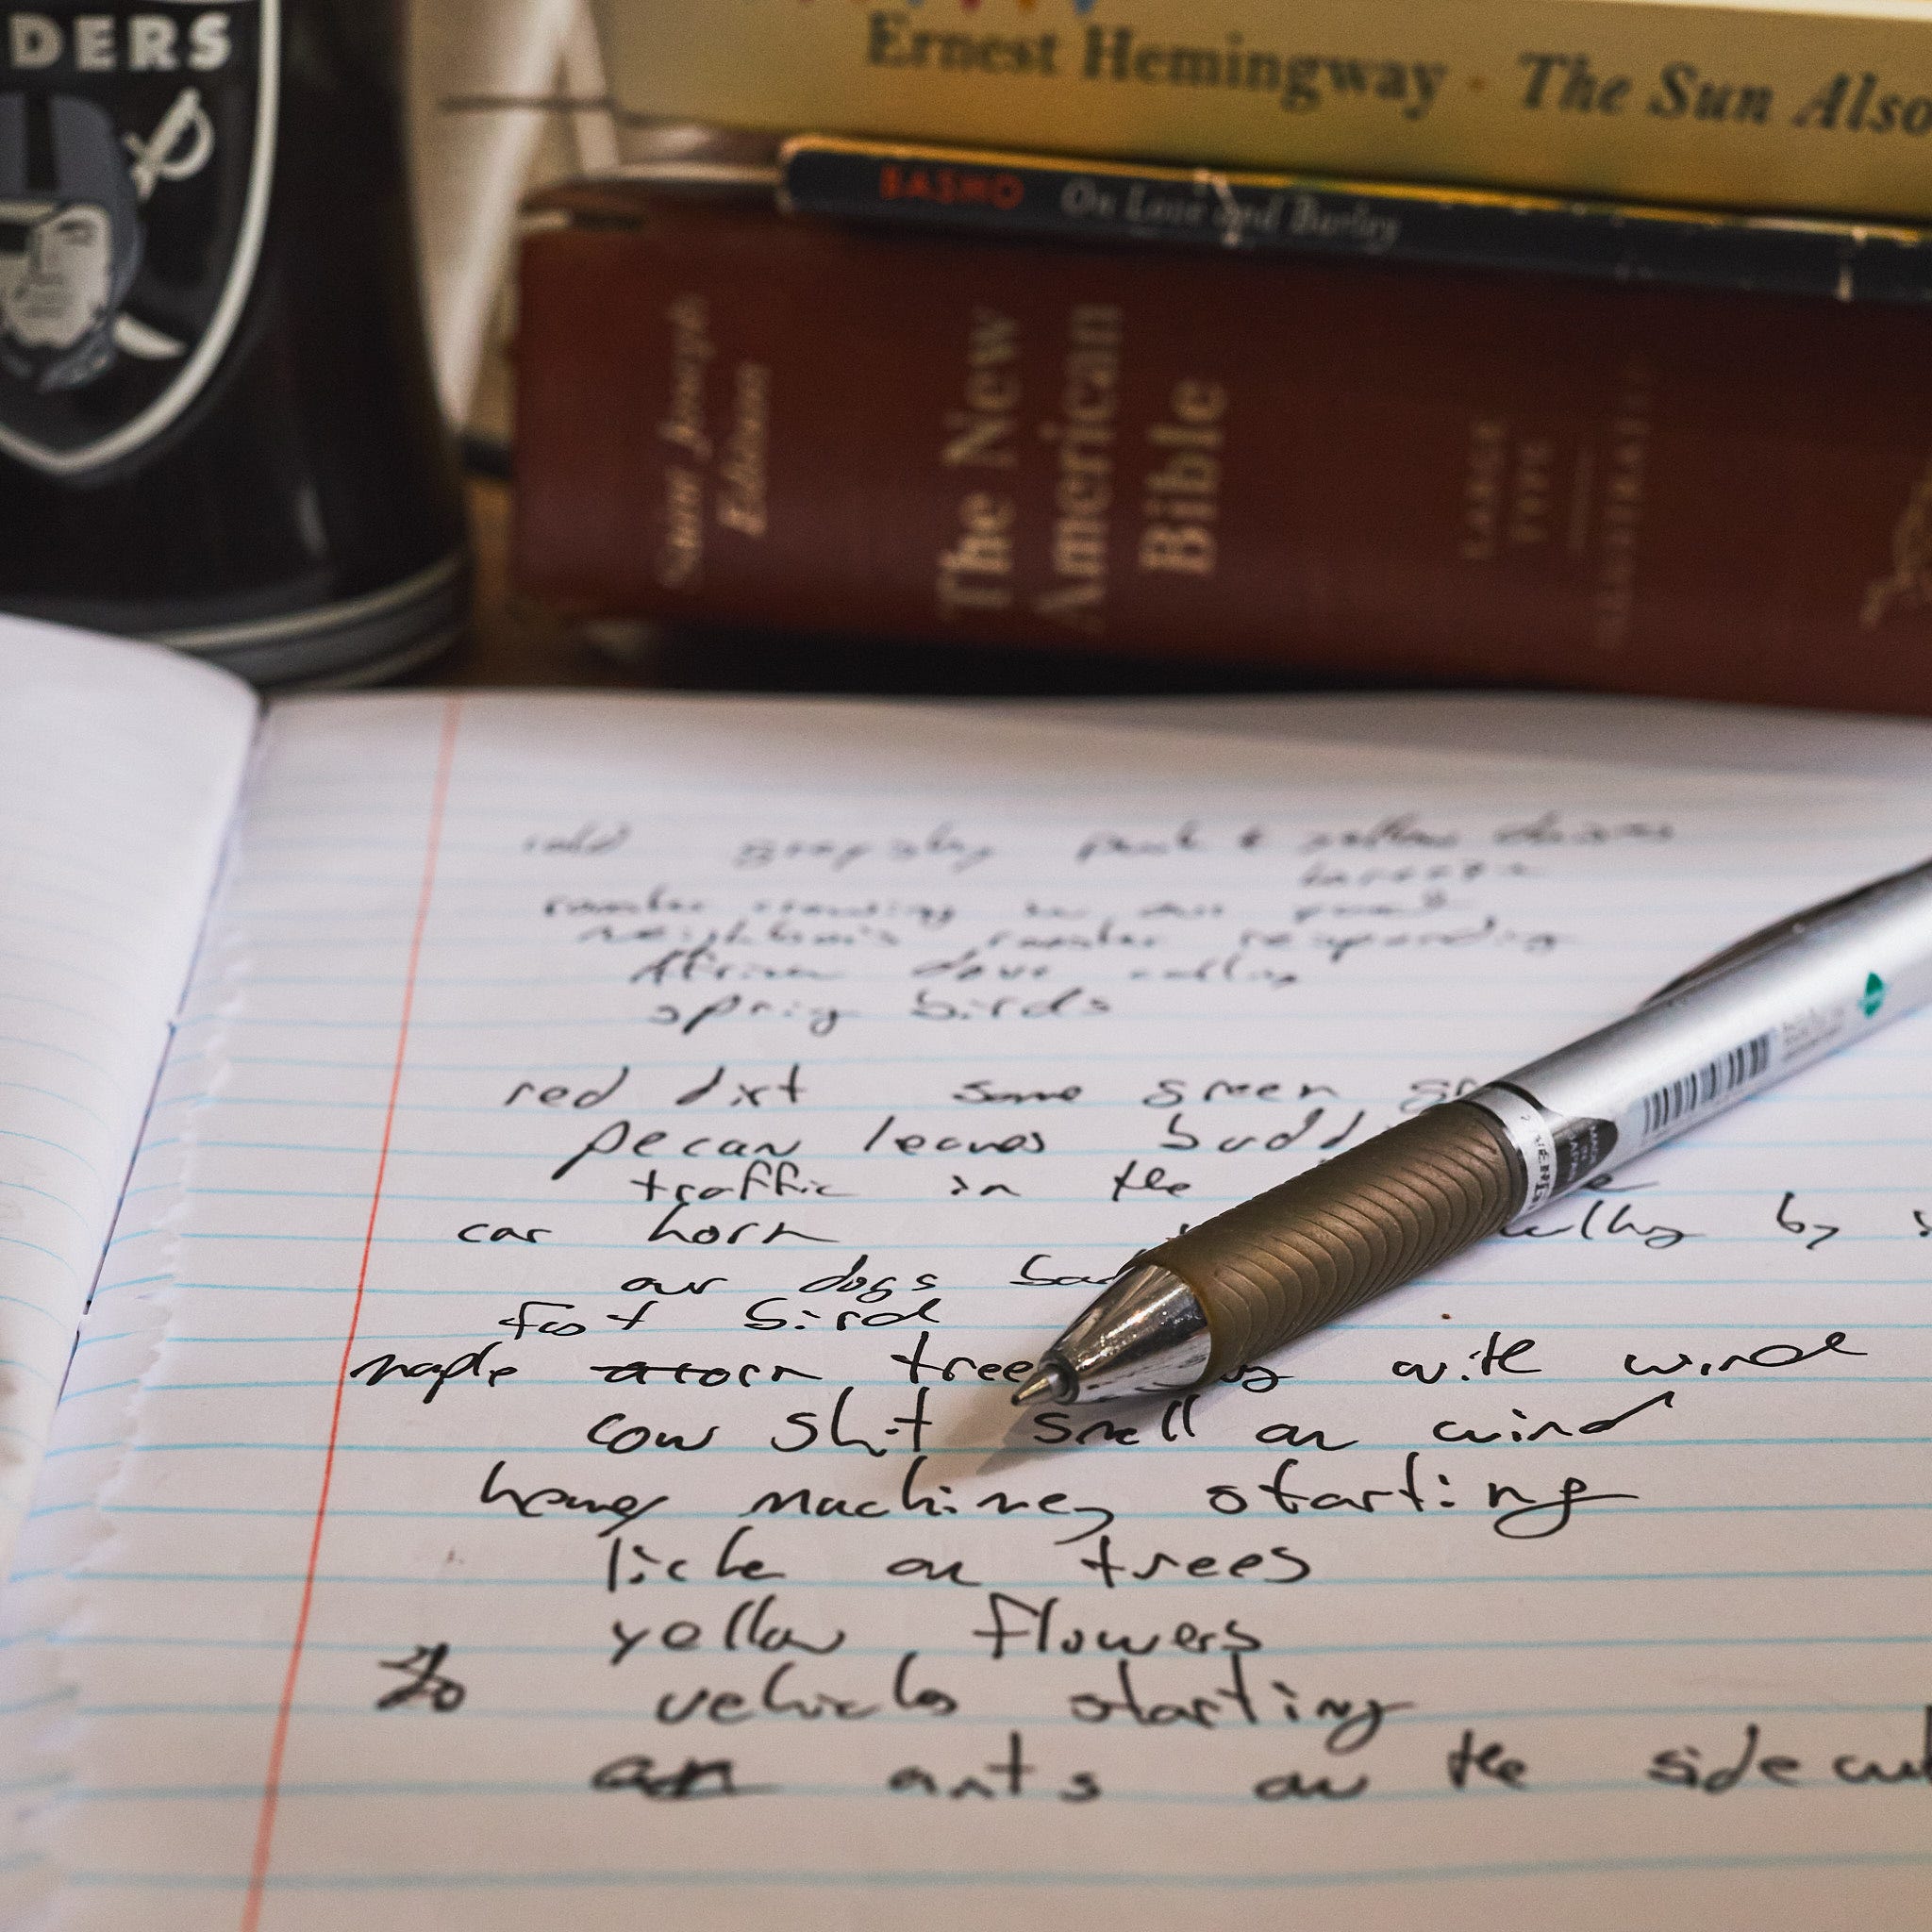 DERS
Ernest Hemingway · The Sun Also
BASHO On Love and Barley
Saint Joseph
Edition
The New
American
Bible
LARGE
TYPE
cold gray sky pink & yellow
rooster crowing in our yard
neighbor's rooster responding
African dove calling
sprig birds
red dirt some green
pecan leaves budd
traffic in the
car horn by
our dogs
foot bird
maple acorn tree with wind
cow shit smell on wind
heavy machines starting
liche on trees
yellow flowers
vehicles starting
an ants on the sidewal